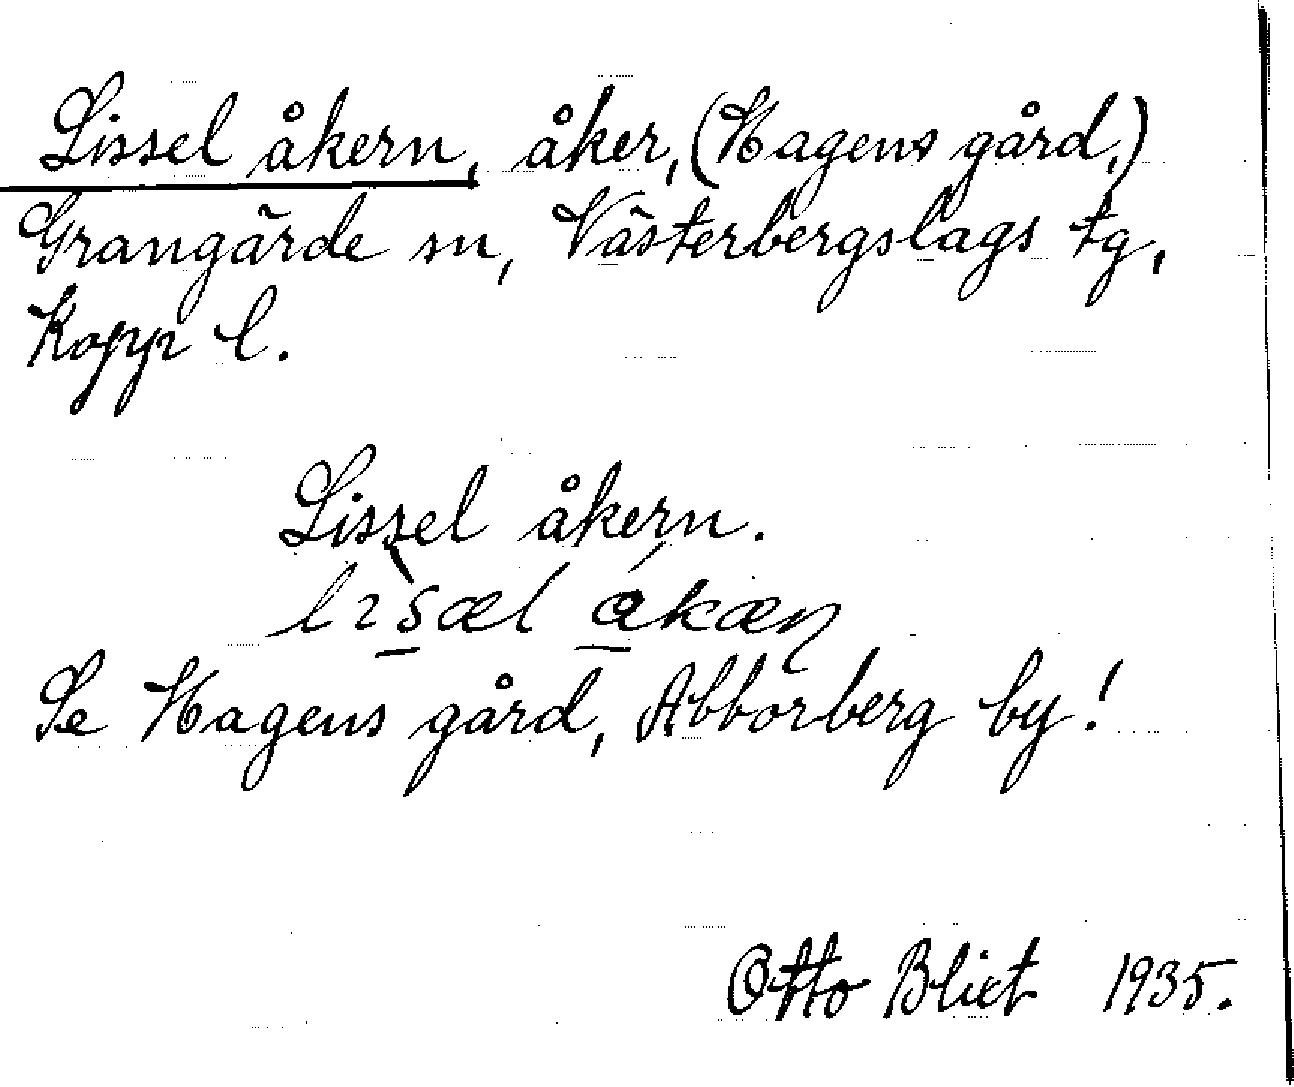 Lissel åkern, åker, (Hagens gård,)
Grangärde sn, Västerbergslags tg,
Kopp l.
Lissel åkern.
lɪsæl åkæɳ
Se Hagens gård, Abborberg by!
Otto Blixt 1935.